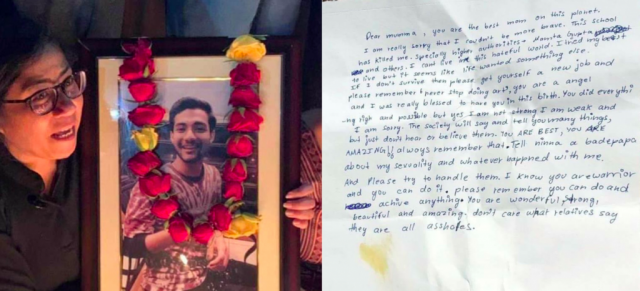 Dear mumma, you are the best mom on this planet.
I am really sorry that I couldn't be more brave. This school
has killed me. Specially higher authorities. Mamta Gupta
and others. I cant live in this hateful world. I tried my best
to live but it seems life wanted something else.
If I don't survive then please get yourself a new job and
please remember never stop doing art, you are a angel
and I was really blessed to have you in this birth. You did everythi
-ng right and possible but yes I am not strong I am weak and
I am sorry. The society will say and tell you many things,
but just don't hear or believe them. YOU ARE BEST, YOU ARE
AMAZING!! always remember that. Tell ninna & badepapa
about my sexuality and whatever happned with me.
And Please try to handle them. I know you are warrior
and you can do it. please remember you can do and
achive anything. You are wonderful, strong,
beautiful and amazing. don't care what relatives say
they are all assholes.